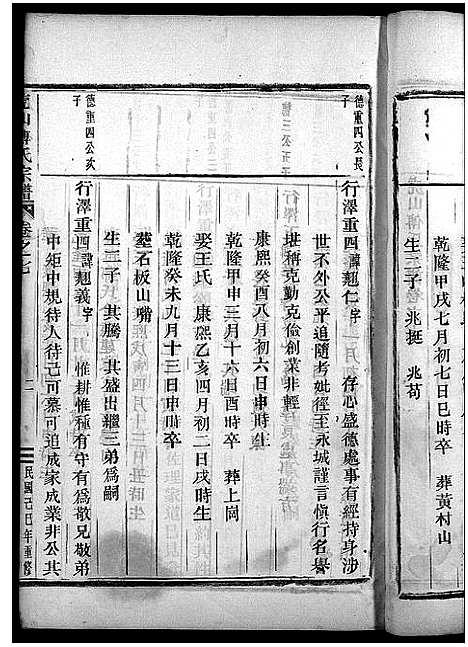 乾隆甲戌七月初七日巳時卒　葬黃村山
生二子　兆挺　兆苟
德重四公長子
行澤重四諱趐仁字　存心盛德處事有經持身涉
世不外公平追隨考妣徑至永城謹言愼行名譽
堪稱克勤克儉創業非輕
康熙癸酉八月初六日申時生
乾隆甲申三月十六日酉時卒　葬上岡
娶王氏　康熙乙亥四月初二日戌時生
乾隆癸未九月十三日申時卒
塟石板山嘴
生二子　其騰　其盛出繼三弟爲嗣
德重四公次子
行澤重四諱趐義字　惟耕惟種有守有爲敬兄敬弟
中矩中規待人待己可慕可追成家成業非公其
山傅氏宗譜
卷之七
二
民國己巳年重修